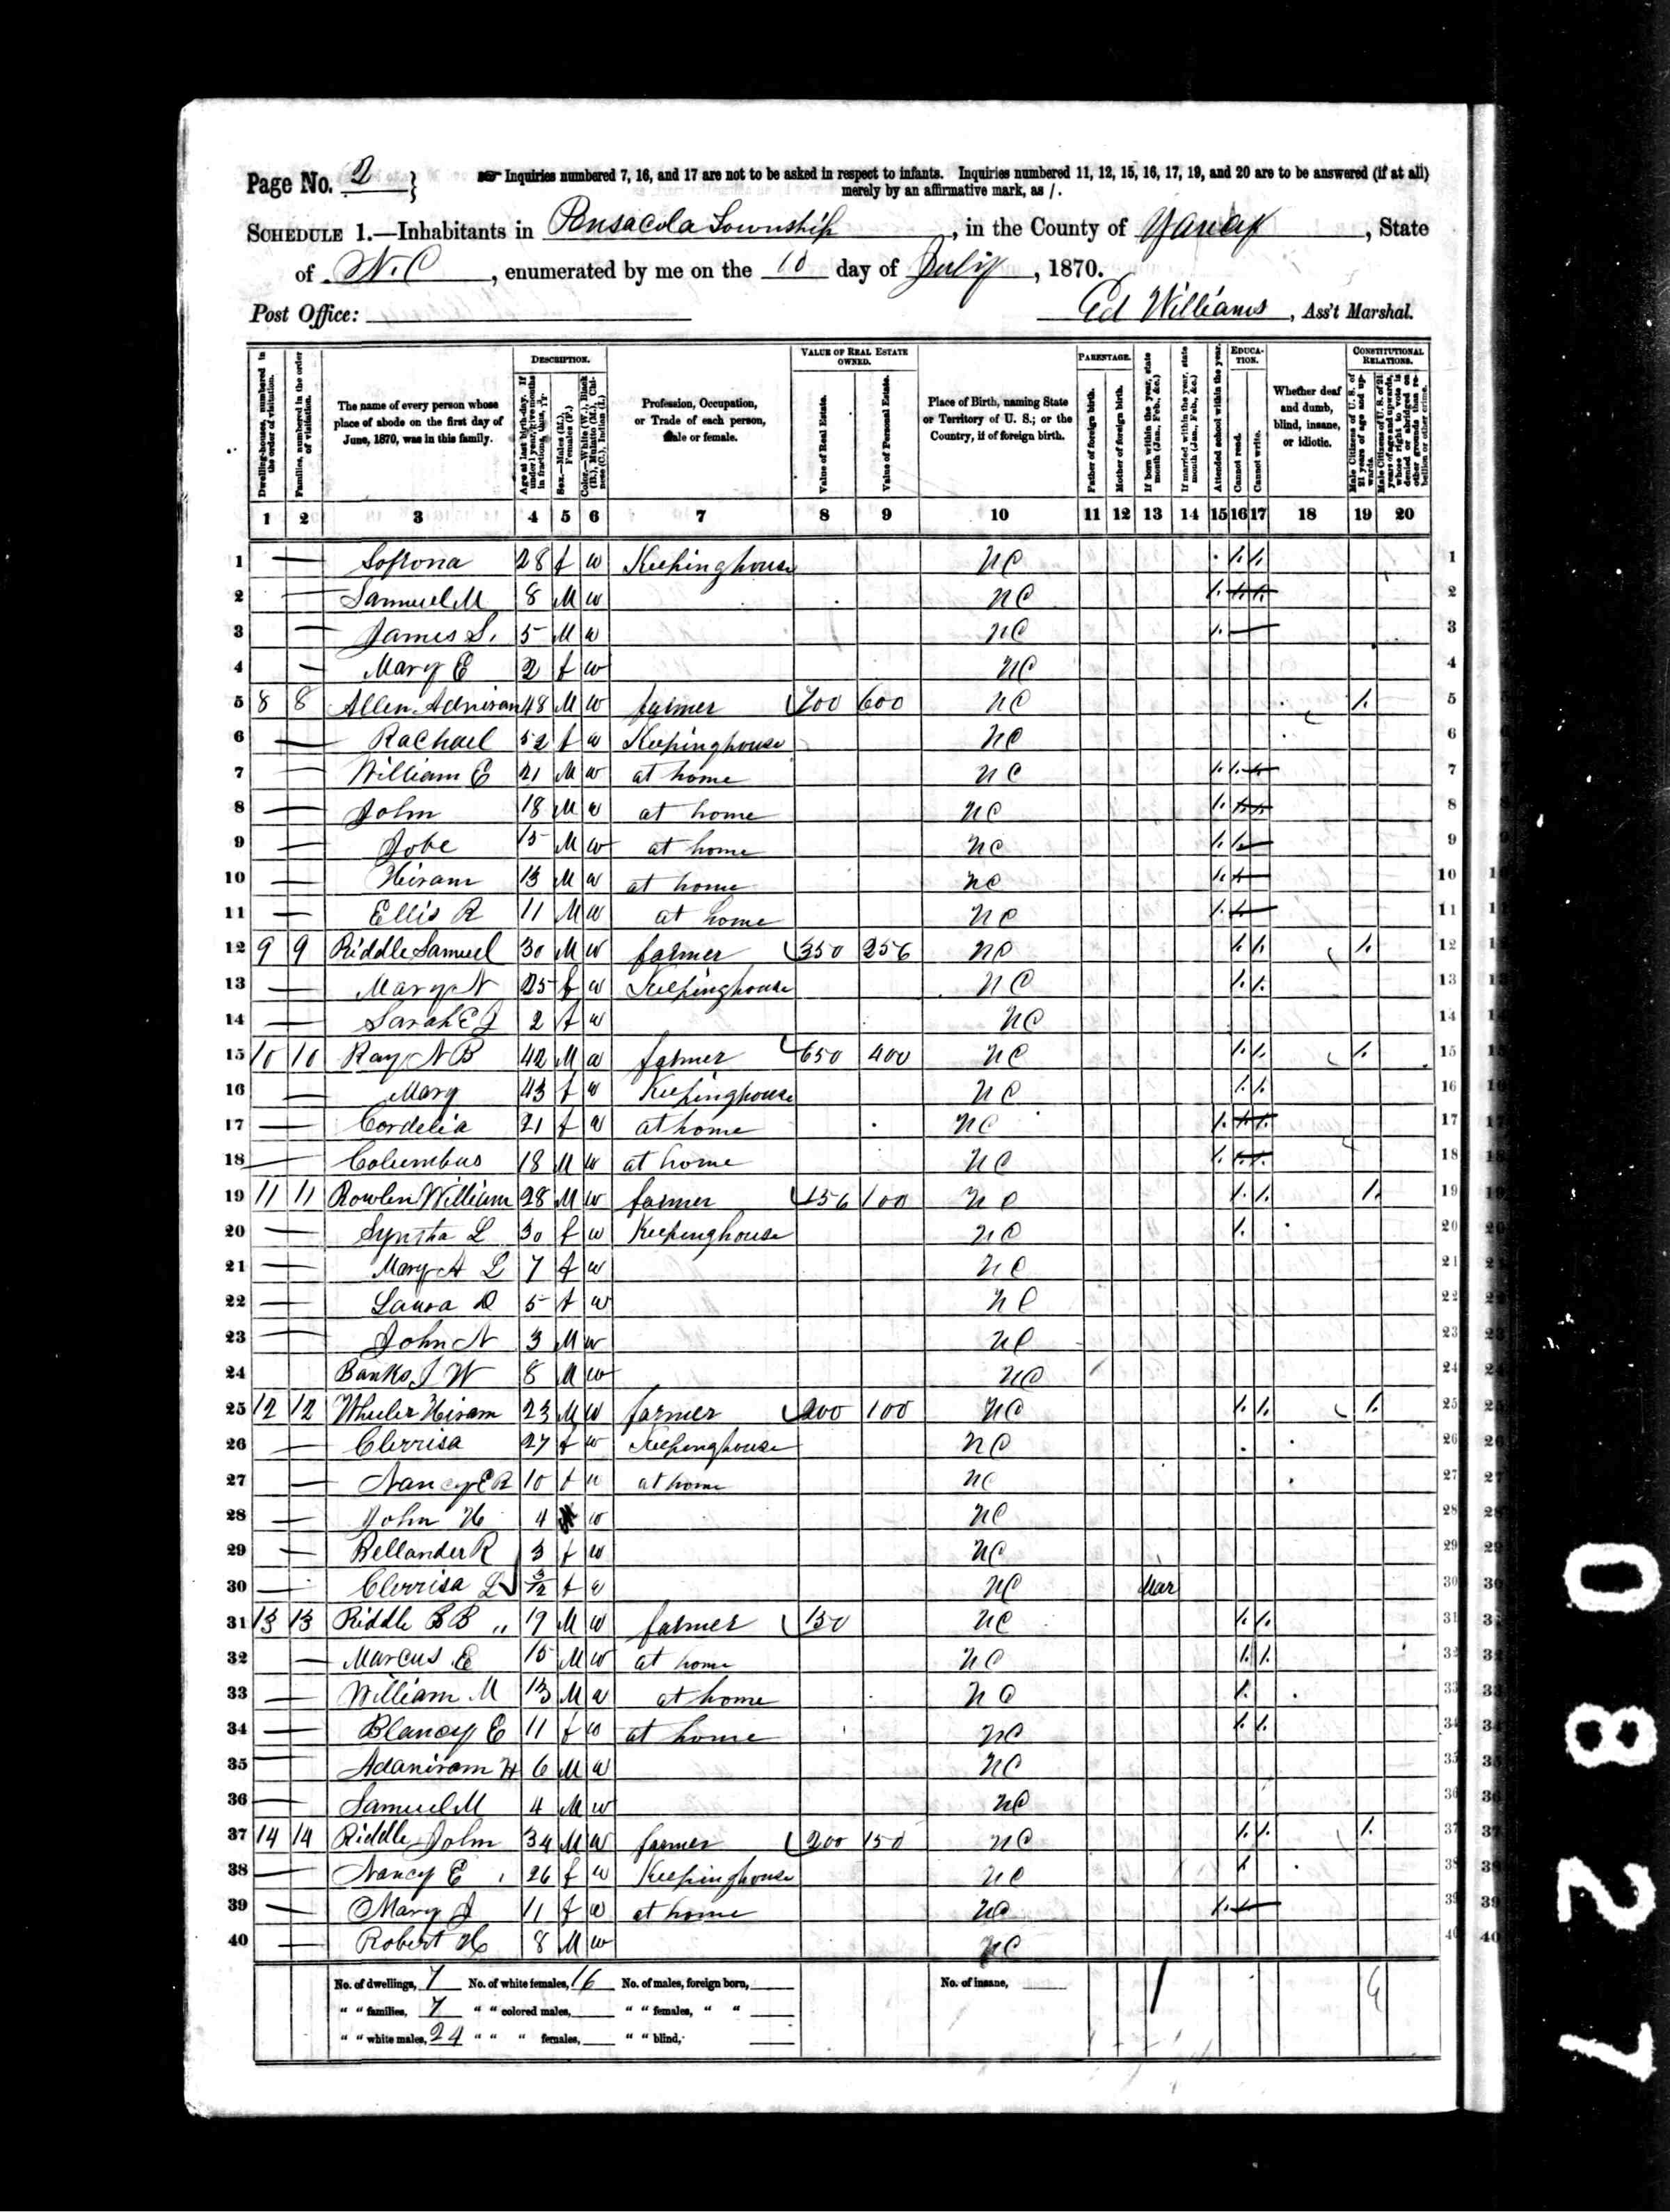 Page No. 2 }
Inquiries numbered 7, 16, and 17 are not to be asked in respect to infants. Inquiries numbered 11, 12, 15, 16, 17, 19, and 20 are to be answered (if at all)
merely by an affirmative mark, as /.
SCHEDULE 1.—Inhabitants in Pensacola Township, in the County of Yancey, State
of N.C, enumerated by me on the 10 day of July, 1870.
Post Office: Ed Williams, Ass't Marshal.
Dwelling-houses, numbered in the order of visitation.
Families, numbered in the order of visitation.
The name of every person whose place of abode on the first day of June, 1870, was in this family.
DESCRIPTION.
Age at last birth-day. If under 1 year, give months in fractions, thus, 3/12
Sex.—Males (M.), Females (F.)
Color.—White (W.), Black (B.), Mulatto (M.), Chinese (C.), Indian (I.)
Profession, Occupation, or Trade of each person, male or female.
VALUE OF REAL ESTATE OWNED.
Value of Real Estate.
Value of Personal Estate.
Place of Birth, naming State or Territory of U. S.; or the Country, if of foreign birth.
PARENTAGE.
Father of foreign birth.
Mother of foreign birth.
If born within the year, state month (Jan., Feb., &c.)
If married within the year, state month (Jan., Feb., &c.)
Attended school within the year.
EDUCATION.
Cannot read.
Cannot write.
Whether deaf and dumb, blind, insane, or idiotic.
CONSTITUTIONAL RELATIONS.
Male Citizens of U. S. of 21 years of age and upwards.
Male Citizens of U. S. of 21 years of age and upwards, whose right to vote is denied or abridged on other grounds than rebellion or other crime.
1 2 3 4 5 6 7 8 9 10 11 12 13 14 15 16 17 18 19 20
1 — Sofrona 28 f w Keepinghouse NC /. /. 1
2 — Samuel M 8 M w NC /. /. /. 2
3 — James S. 5 M w NC /. — 3
4 — Mary E 2 f w NC 4
5 8 8 Allen Adniran 48 M w farmer 700 600 NC /. 5
6 — Rachael 52 f w Keepinghouse NC 6
7 — William E 21 M w at home NC /. /. /. 7
8 — John 18 M w at home NC /. /. /. 8
9 — Jobe 15 M w at home NC /. /. — 9
10 — Hiram 13 M w at home NC /. /. — 10
11 — Ellis R 11 M w at home NC /. /. — 11
12 9 9 Riddle Samuel 30 M w farmer 350 256 NC /. /. /. 12
13 — Mary N 25 f w Keepinghouse NC /. /. 13
14 — Sarah E J 2 f w NC 14
15 10 10 Ray N B 42 M w farmer 650 400 NC /. /. /. 15
16 — Mary 43 f w Keepinghouse NC /. /. 16
17 — Cordelia 21 f w at home NC /. /. /. 17
18 — Columbus 18 M w at home NC /. /. /. 18
19 11 11 Rowlen William 28 M w farmer 156 100 NC /. /. /. 19
20 — Syntha L 30 f w Keepinghouse NC /. 20
21 — Mary A L 7 f w NC 21
22 — Laura D 5 f w NC 22
23 — John N 3 M w NC 23
24 Banks J W 8 M w NC 24
25 12 12 Wheeler Hiram 23 M w farmer 200 100 NC /. /. /. 25
26 — Clerrisa 27 f w Keepinghouse NC 26
27 — Nancy E R 10 f w at home NC 27
28 — John H 4 M w NC 28
29 — Bellander R 3 f w NC 29
30 — Clerrisa L 3/12 f w NC Mar 30
31 13 13 Riddle B B " 19 M w farmer 150 NC /. /. 31
32 — Marcus E 15 M w at home NC /. /. 32
33 — William M 13 M w at home NC /. 33
34 — Blancy E 11 f w at home NC /. /. 34
35 — Adaniram H 6 M w NC 35
36 — Samuel M 4 M w NC 36
37 14 14 Riddle John 34 M w farmer 200 150 NC /. /. /. 37
38 — Nancy E 26 f w Keepinghouse NC / 38
39 — Mary J 11 f w at home NC /. /. — 39
40 — Robert H 8 M w NC 40
No. of dwellings, 7 No. of white females, 16 No. of males, foreign born, No. of insane, 1
" " families, 7 " " colored males, " " females, " "
" " white males, 24 " " " females, " " blind,
0827